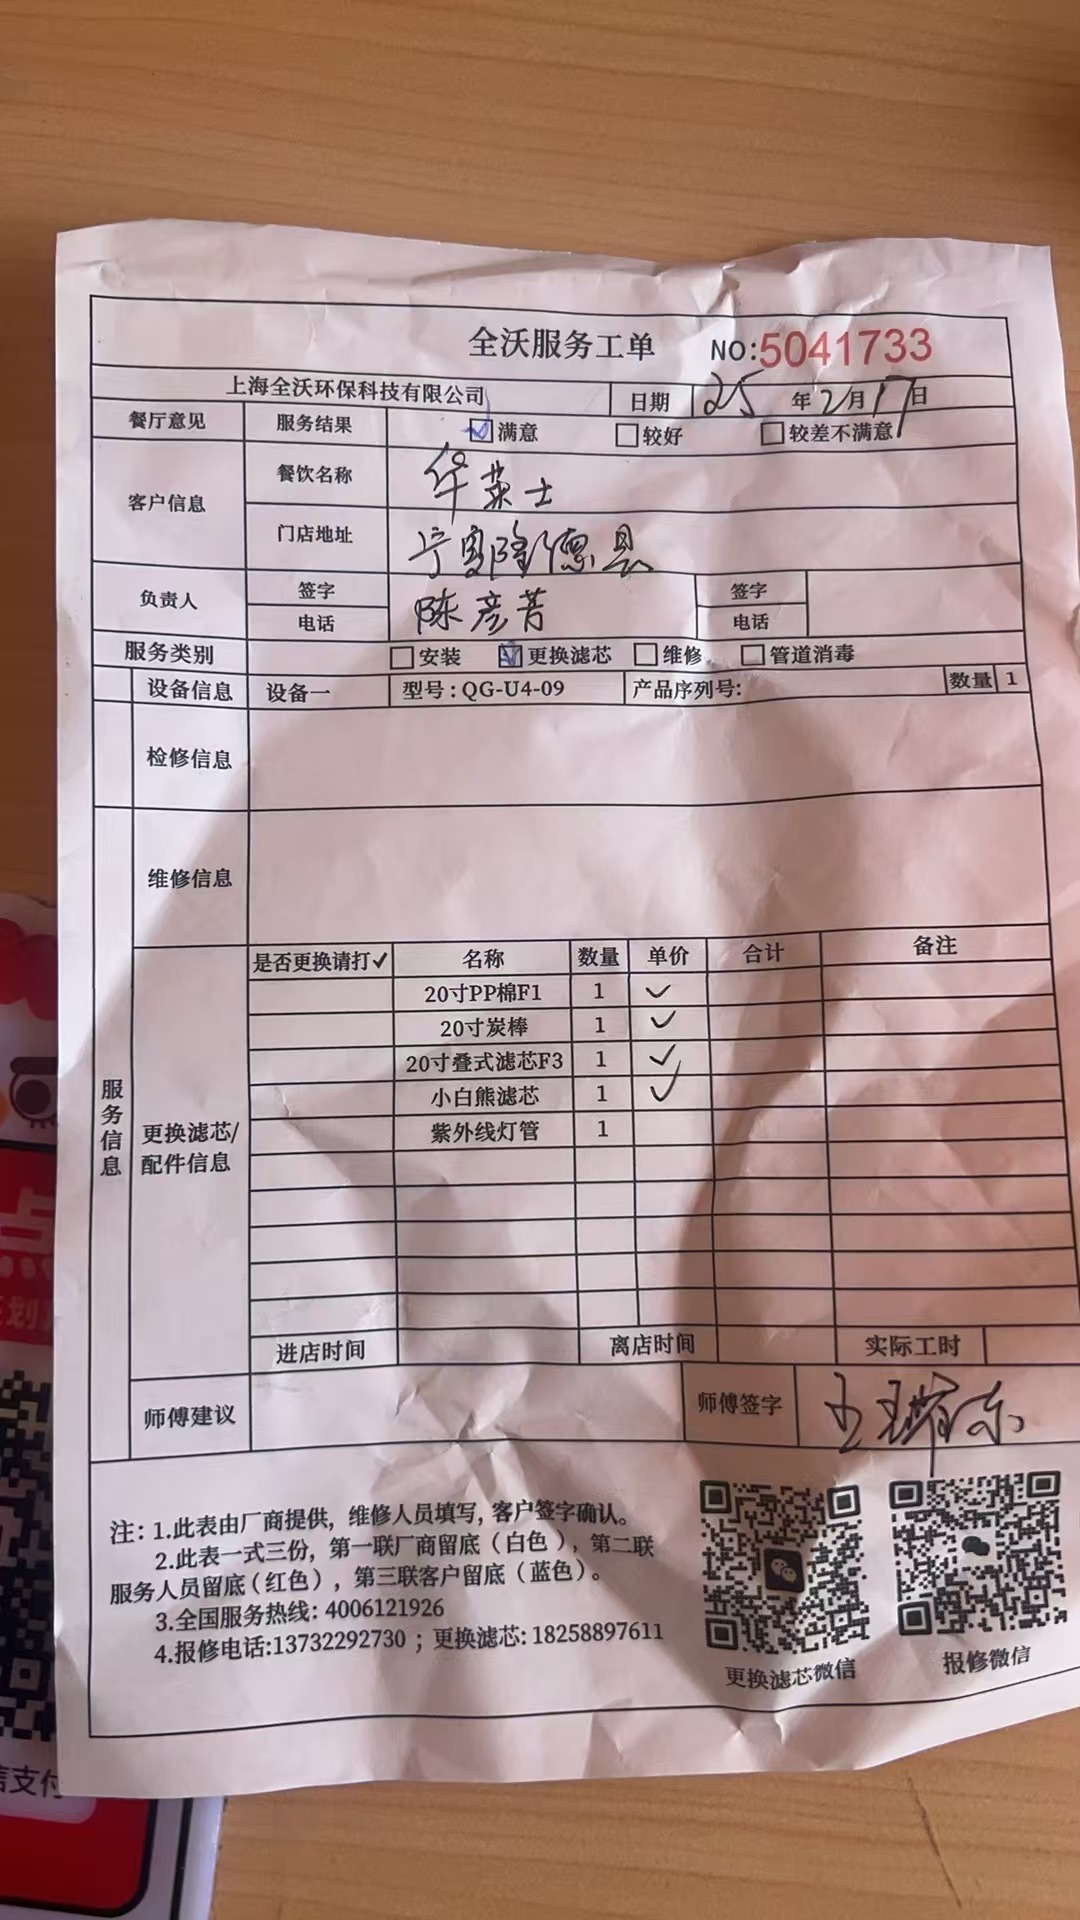 全沃服务工单 NO:5041733
上海全沃环保科技有限公司 日期 25年2月17日
餐厅意见 服务结果 ☑满意 □较好 □较差不满意
客户信息 餐饮名称 华莱士
门店地址 宁夏隆德县
负责人 签字 陈彦芳 签字
电话 电话
服务类别 □安装 ☑更换滤芯 □维修 □管道消毒
设备信息 设备一 型号:QG-U4-09 产品序列号: 数量 1
检修信息
维修信息
服务信息
更换滤芯/配件信息
是否更换请打✓ 名称 数量 单价 合计 备注
20寸PP棉F1 1 ✓
20寸炭棒 1 ✓
20寸叠式滤芯F3 1 ✓
小白熊滤芯 1 ✓
紫外线灯管 1
进店时间 离店时间 实际工时
师傅建议 师傅签字 王
注: 1.此表由厂商提供, 维修人员填写, 客户签字确认。
2.此表一式三份, 第一联厂商留底(白色), 第二联
服务人员留底(红色), 第三联客户留底(蓝色)。
3.全国服务热线: 4006121926
4.报修电话:13732292730 ; 更换滤芯: 18258897611
更换滤芯微信 报修微信
点
划
信支付